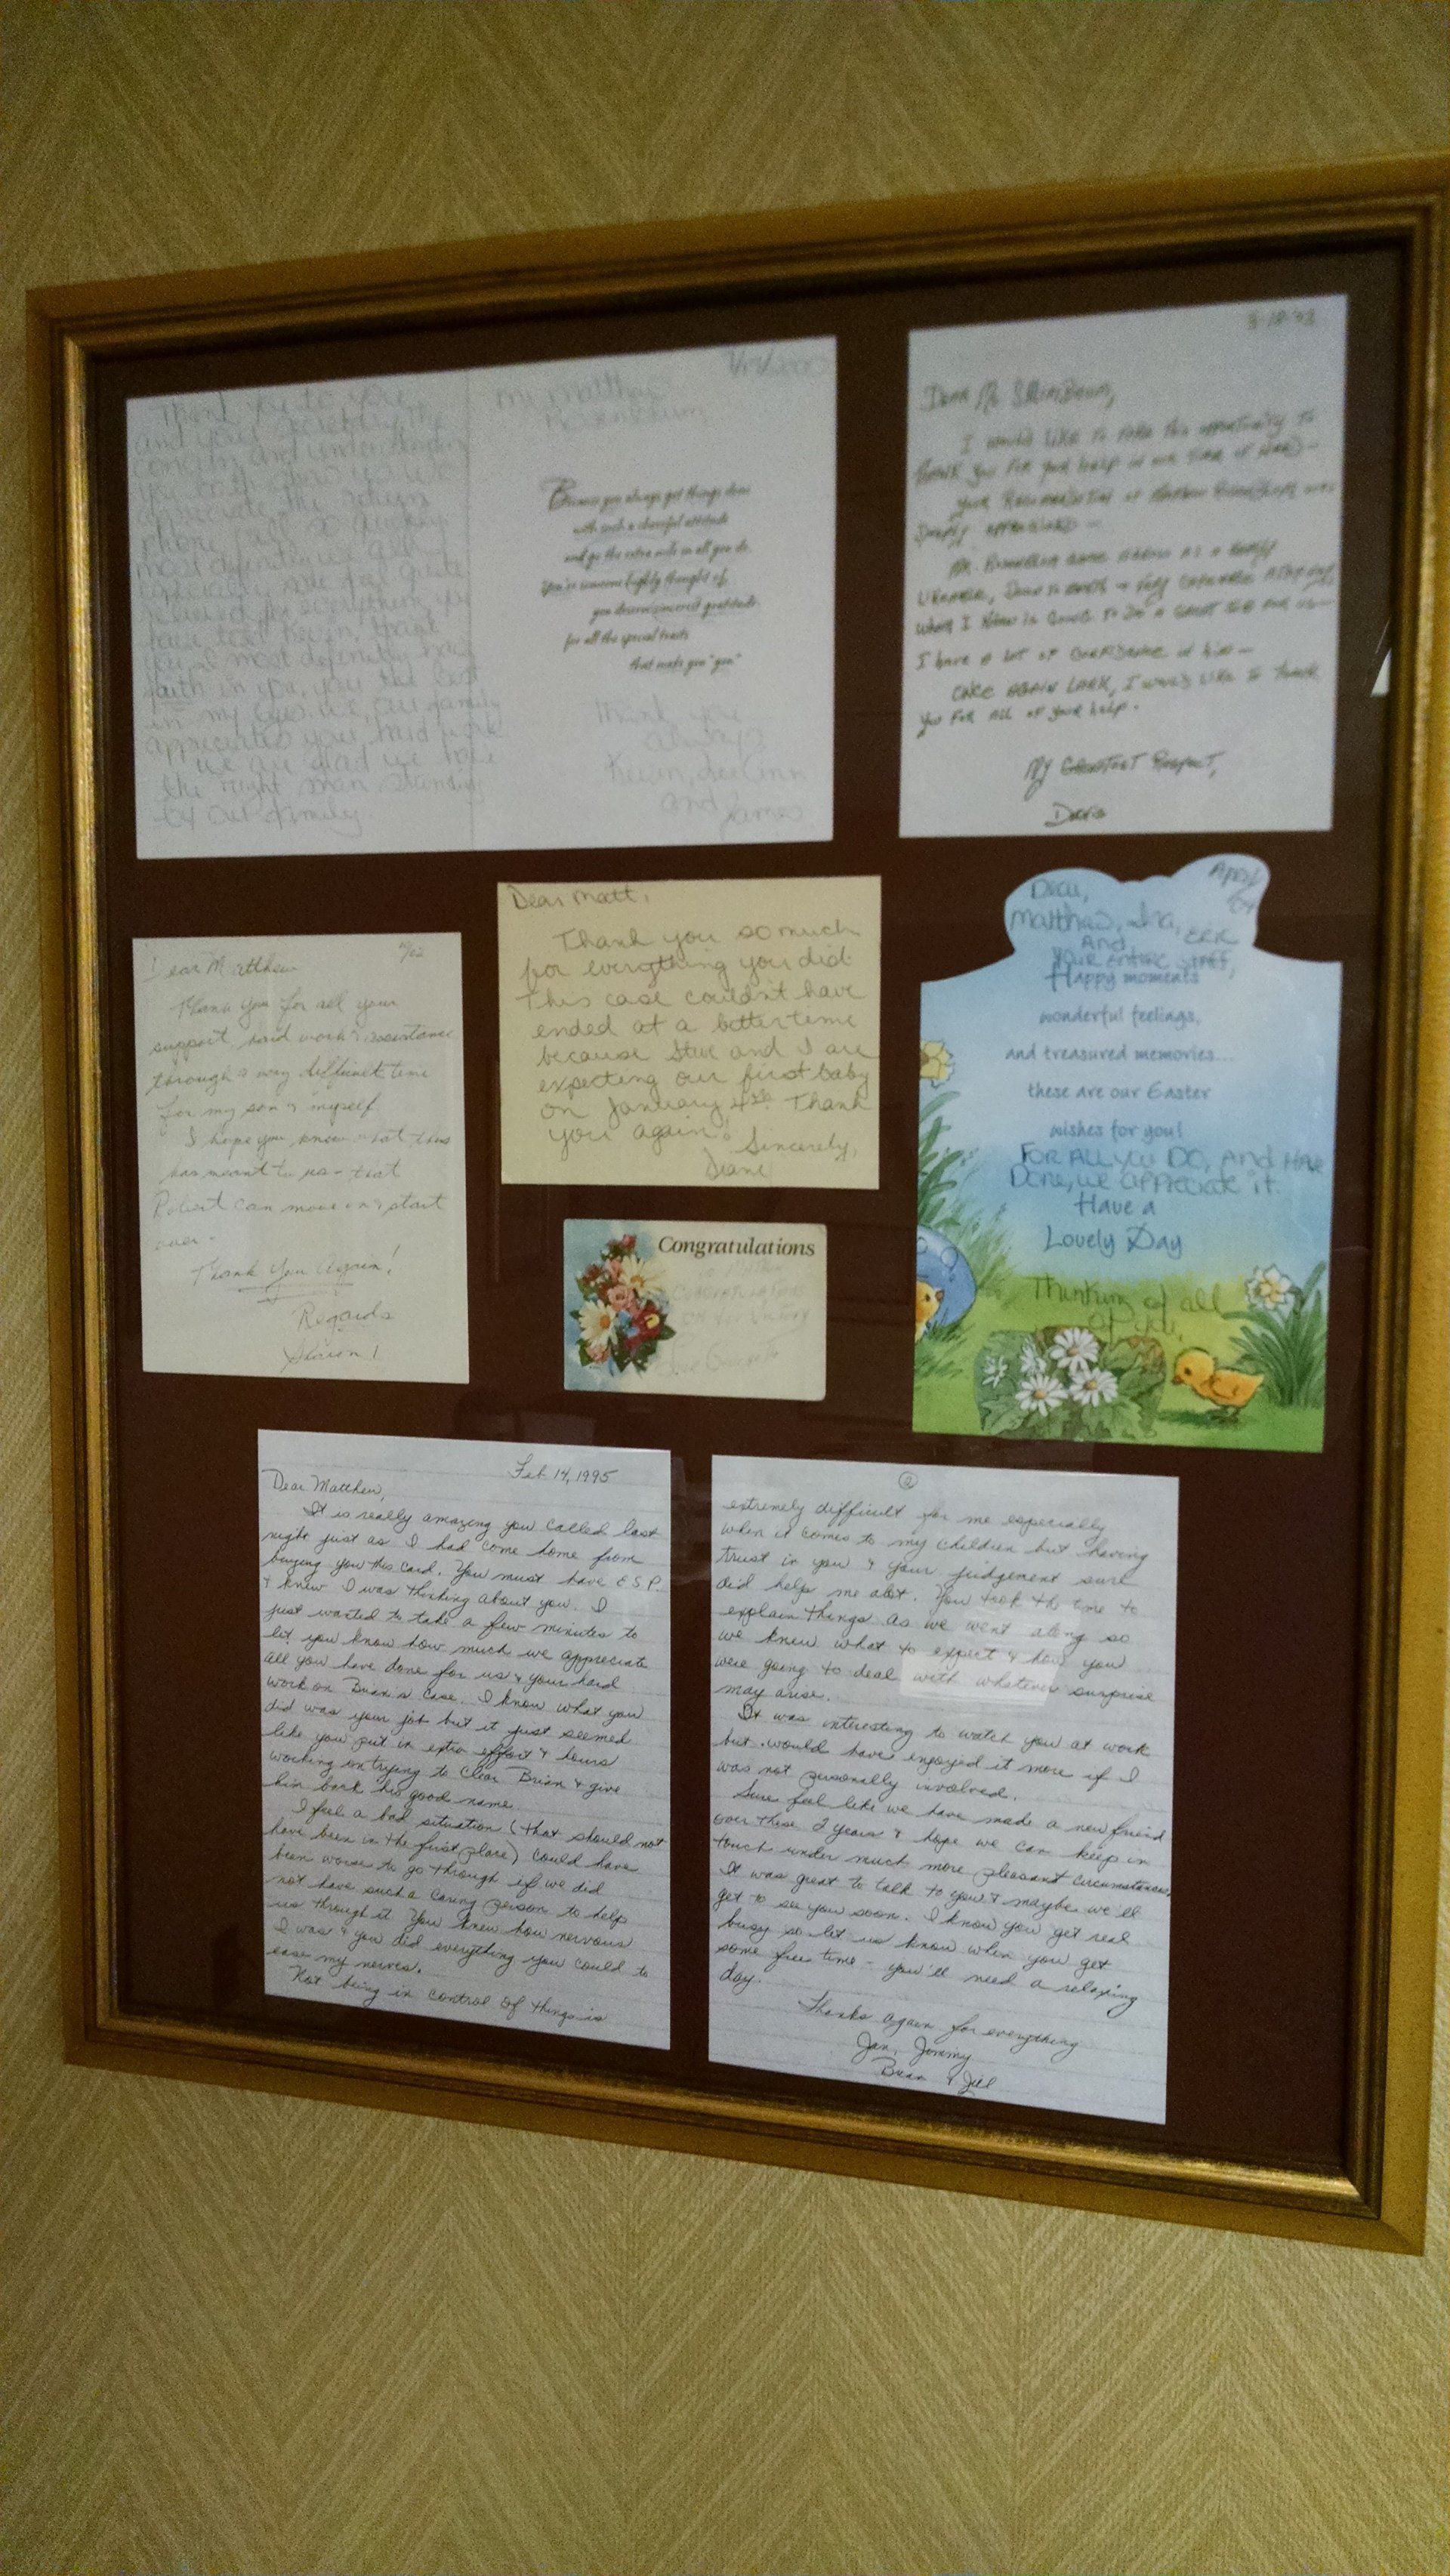 Thank you to you
and your secretary the
concern and understanding
appreciate the return
phone
most definitely
have told Kevin, trust
you, I most definitely have
faith in you, you the best
in my eyes. We, our family
appreciates your hard work
we are glad we have
the right man standing
by our family
Mr. Matthew
Because you always get things done
with such a cheerful attitude
and go the extra mile in all you do.
You're someone highly thought of,
you deserve sincerest gratitude
for all the special traits
that make you "you"
Thank you
always
Kevin, LeeAnn
and James
Dear Mr
I would like to take this opportunity to
thank you for your help in our time of need -
your recommendation of Matthew was
deeply appreciated -
Mr. came across as a
very capable attorney
whom I know is going to do a great job for us -
I have a lot of confidence in him -
Once again I would like to thank
you for all of your help.
My Greatest Respect,
Dear Matthew
Thank you for all your
support, hard work & assistance
through a very difficult time
for my son & myself.
I hope you know what this
has meant to us - that
Robert can move on & start
over -
Thank You Again!
Regards
Dear Matt,
Thank you so much
for everything you did.
This case couldn't have
ended at a better time
because Steve and I are
expecting our first baby
on January 4th. Thank
you again!
Sincerely,
Diane
Congratulations
Congratulations
on your victory
April
Dear,
Matthew,
And
your entire staff,
Happy moments
wonderful feelings,
and treasured memories...
these are our Easter
wishes for you!
FOR ALL YOU DO, AND HAVE
Done, we appreciate it.
Have a
Lovely Day
Thinking of all
of you.
Feb 14, 1995
Dear Matthew,
It is really amazing you called last
night just as I had come home from
buying you this card. You must have E.S.P.
& knew I was thinking about you. I
just wanted to take a few minutes to
let you know how much we appreciate
all you have done for us & your hard
work on Brian's case. I know what you
did was your job but it just seemed
like you put in extra effort & hours
working on trying to clear Brian & give
him back his good name.
I feel a bad situation (that should not
have been in the first place) could have
been worse to go through if we did
not have such a caring person to help
us through it. You knew how nervous
I was & you did everything you could to
ease my nerves.
Not being in control of things is
2
extremely difficult for me especially
when it comes to my children but having
trust in you & your judgement sure
did help me alot. You took the time to
explain things as we went along so
we knew what to expect & how you
were going to deal with whatever surprise
may arise.
It was interesting to watch you at work
but would have enjoyed it more if I
was not personally involved.
Sure feel like we have made a new friend
over these 2 years & hope we can keep in
touch under much more pleasant circumstances.
It was great to talk to you & maybe we'll
get to see you soon. I know you get real
busy so let us know when you get
some free time - you'll need a relaxing
day.
Thanks again for everything
Jan, Jeremy
Brian & Jill